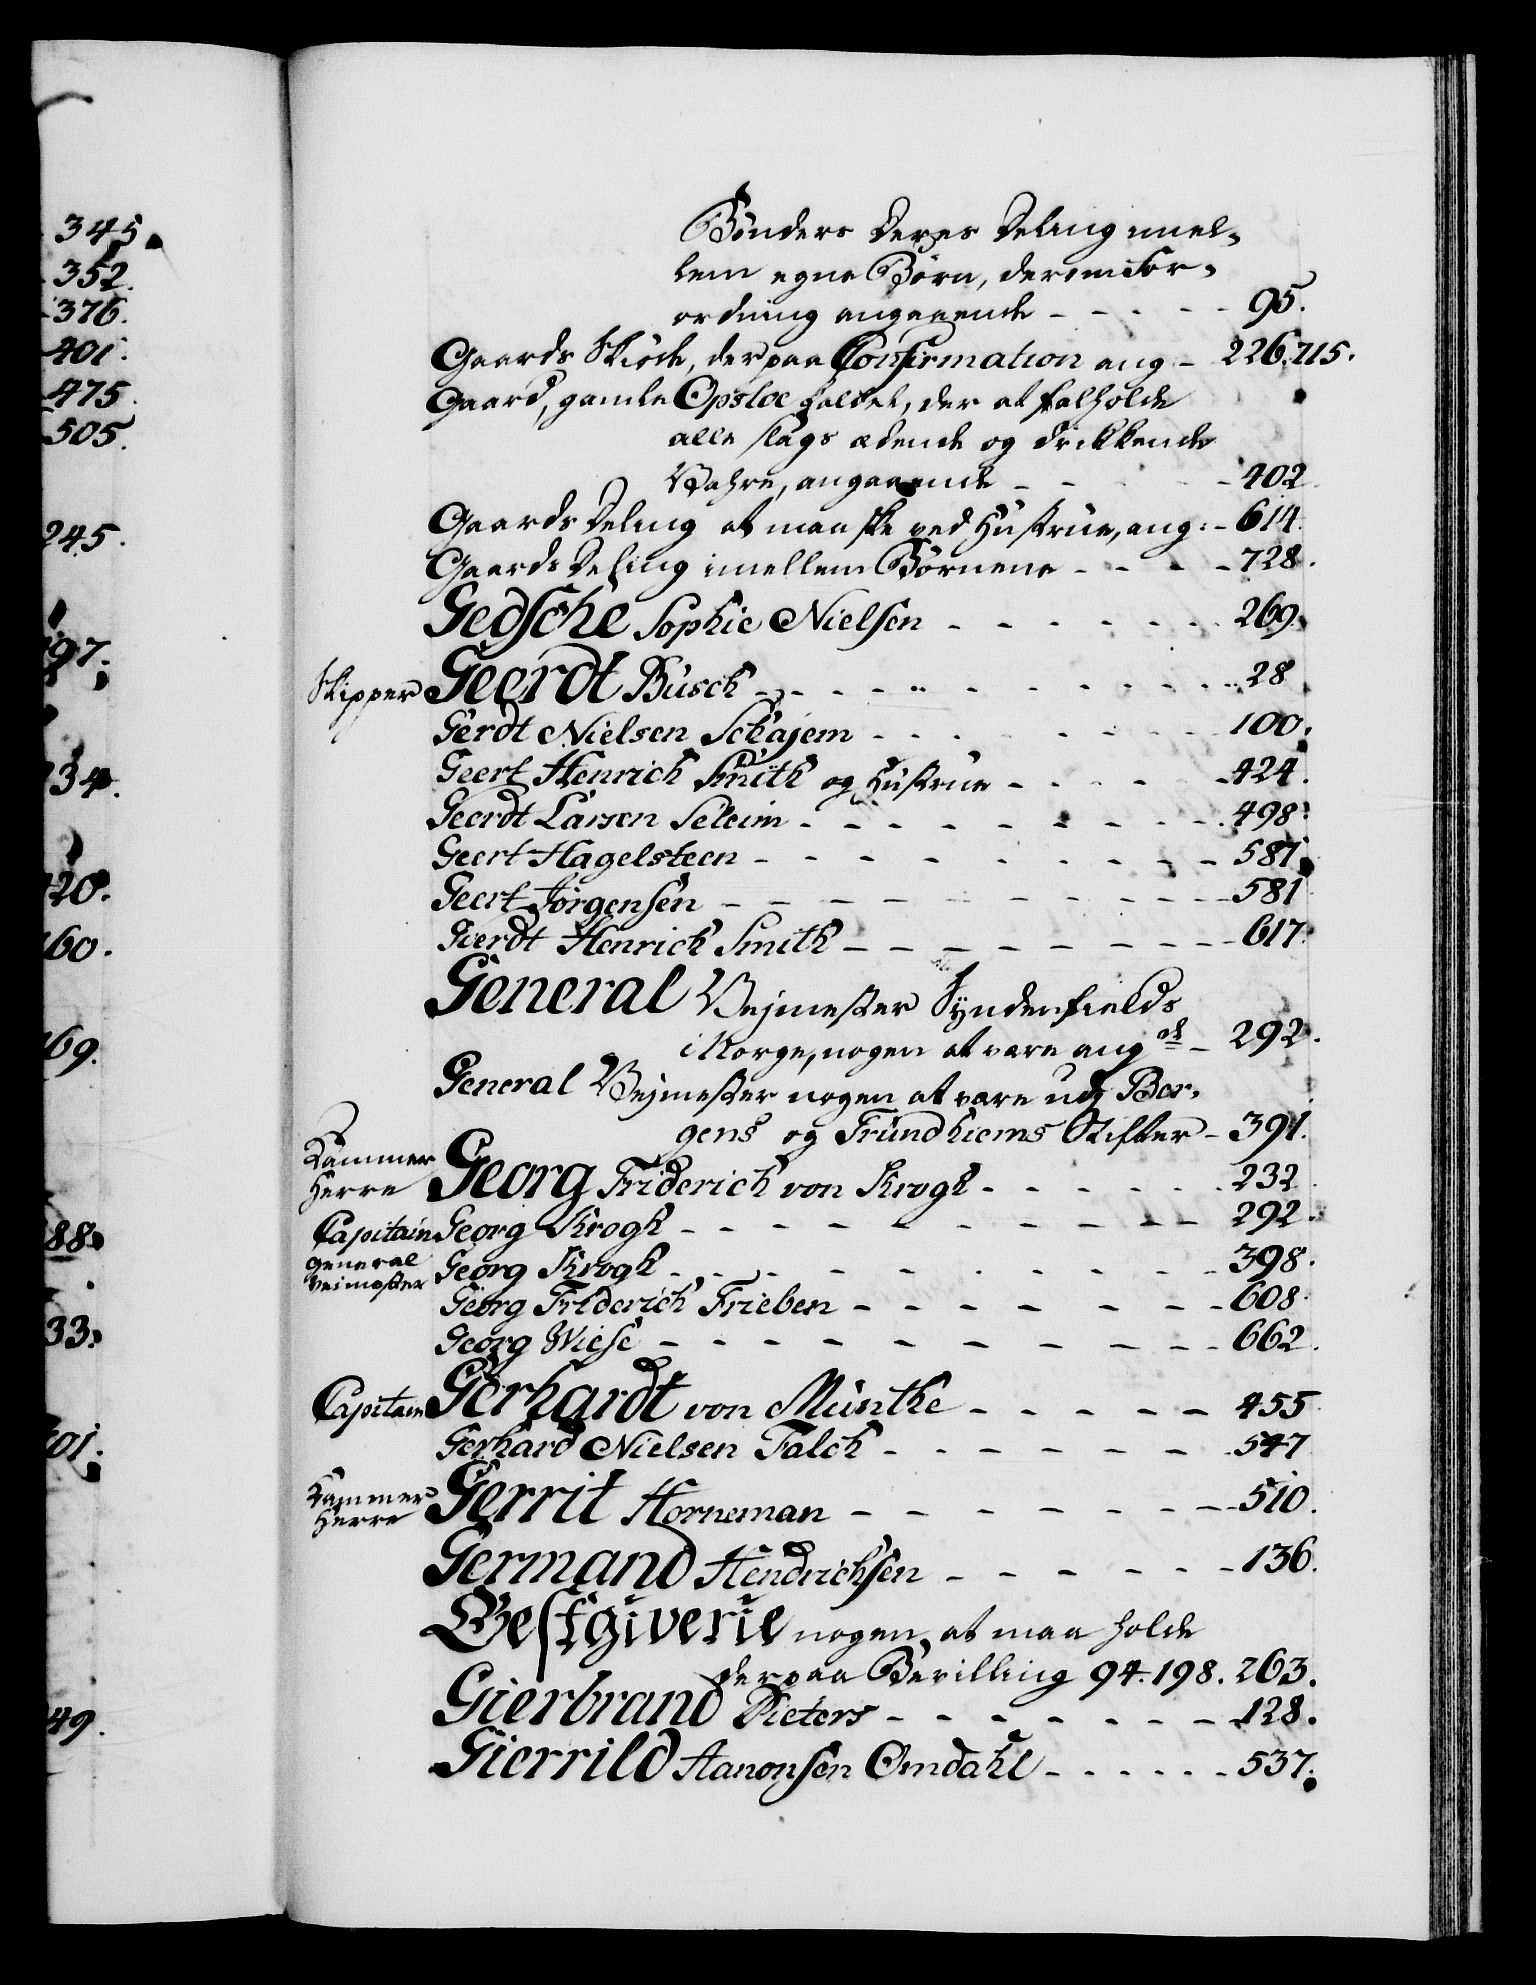 345.
352.
376.
401.
475.
505.
245.
97.
34.
20.
60.
69.
88.
33.
01.
49.
Bönders deres Deling imel-
lem egne Börn, derom For-
ordning angaaende - - - - - 95.
Gaards Skiöde, derpaa Confirmation ang - 226.715.
Gaard, gamle Opsloe kaldet, der at falholde
alle slags ædende og drikkende
Vahre, angaaende - - - - - 402.
Gaards Deling at maa skee ved Hustrue, ang: - 614.
Gaards Deling imellem Börnene - - - - 728.
Gedsche Sophie Nielsen - - - - - - - 269.
Skipper Geerdt Busch - - - - - - - - - - - 28
Gerdt Nielsen Schajem - - - - - - - - - 100.
Geert Henrich Smith og Hustrue - - - - - 424.
Geerdt Larsen Seleim - - - - - - - - - - 498.
Geert Hagelsteen - - - - - - - - - - - 587.
Geert Jörgensen - - - - - - - - - - - - 581
Gierdt Henrich Smith - - - - - - - - - - 617.
General Vejmester Syndenfields
i Norge, nogen at være ang de - 292.
General Vejmester nogen at være udj Ber-
gens og Trundhiems Stifter - 391.
Kammer
Herre Georg Friderich von Krogh - - - - - - - 232
Capitain Georg Krogh - - - - - - - - - - - - 292.
General
Veimester Georg Krogh - - - - - - - - - - - - 398.
Georg Friderich Frieben - - - - - - - - 608.
Georg Wiese - - - - - - - - - - - - 662.
Capitain Gerhardt von Munthe - - - - - - 455
Gerhard Nielsen Falch - - - - - - - - 547
Kammer
Herre Gerrit Horneman - - - - - - - - - 510.
Germand Hendrichsen - - - - - - - 136.
Gestgiverie nogen, at maa holde
derpaa Bevilling 94. 198. 263.
Gierbrand Pieters - - - - - - - - - 128.
Gierrild Aanonsen Omdahl - - - - - - - 537.